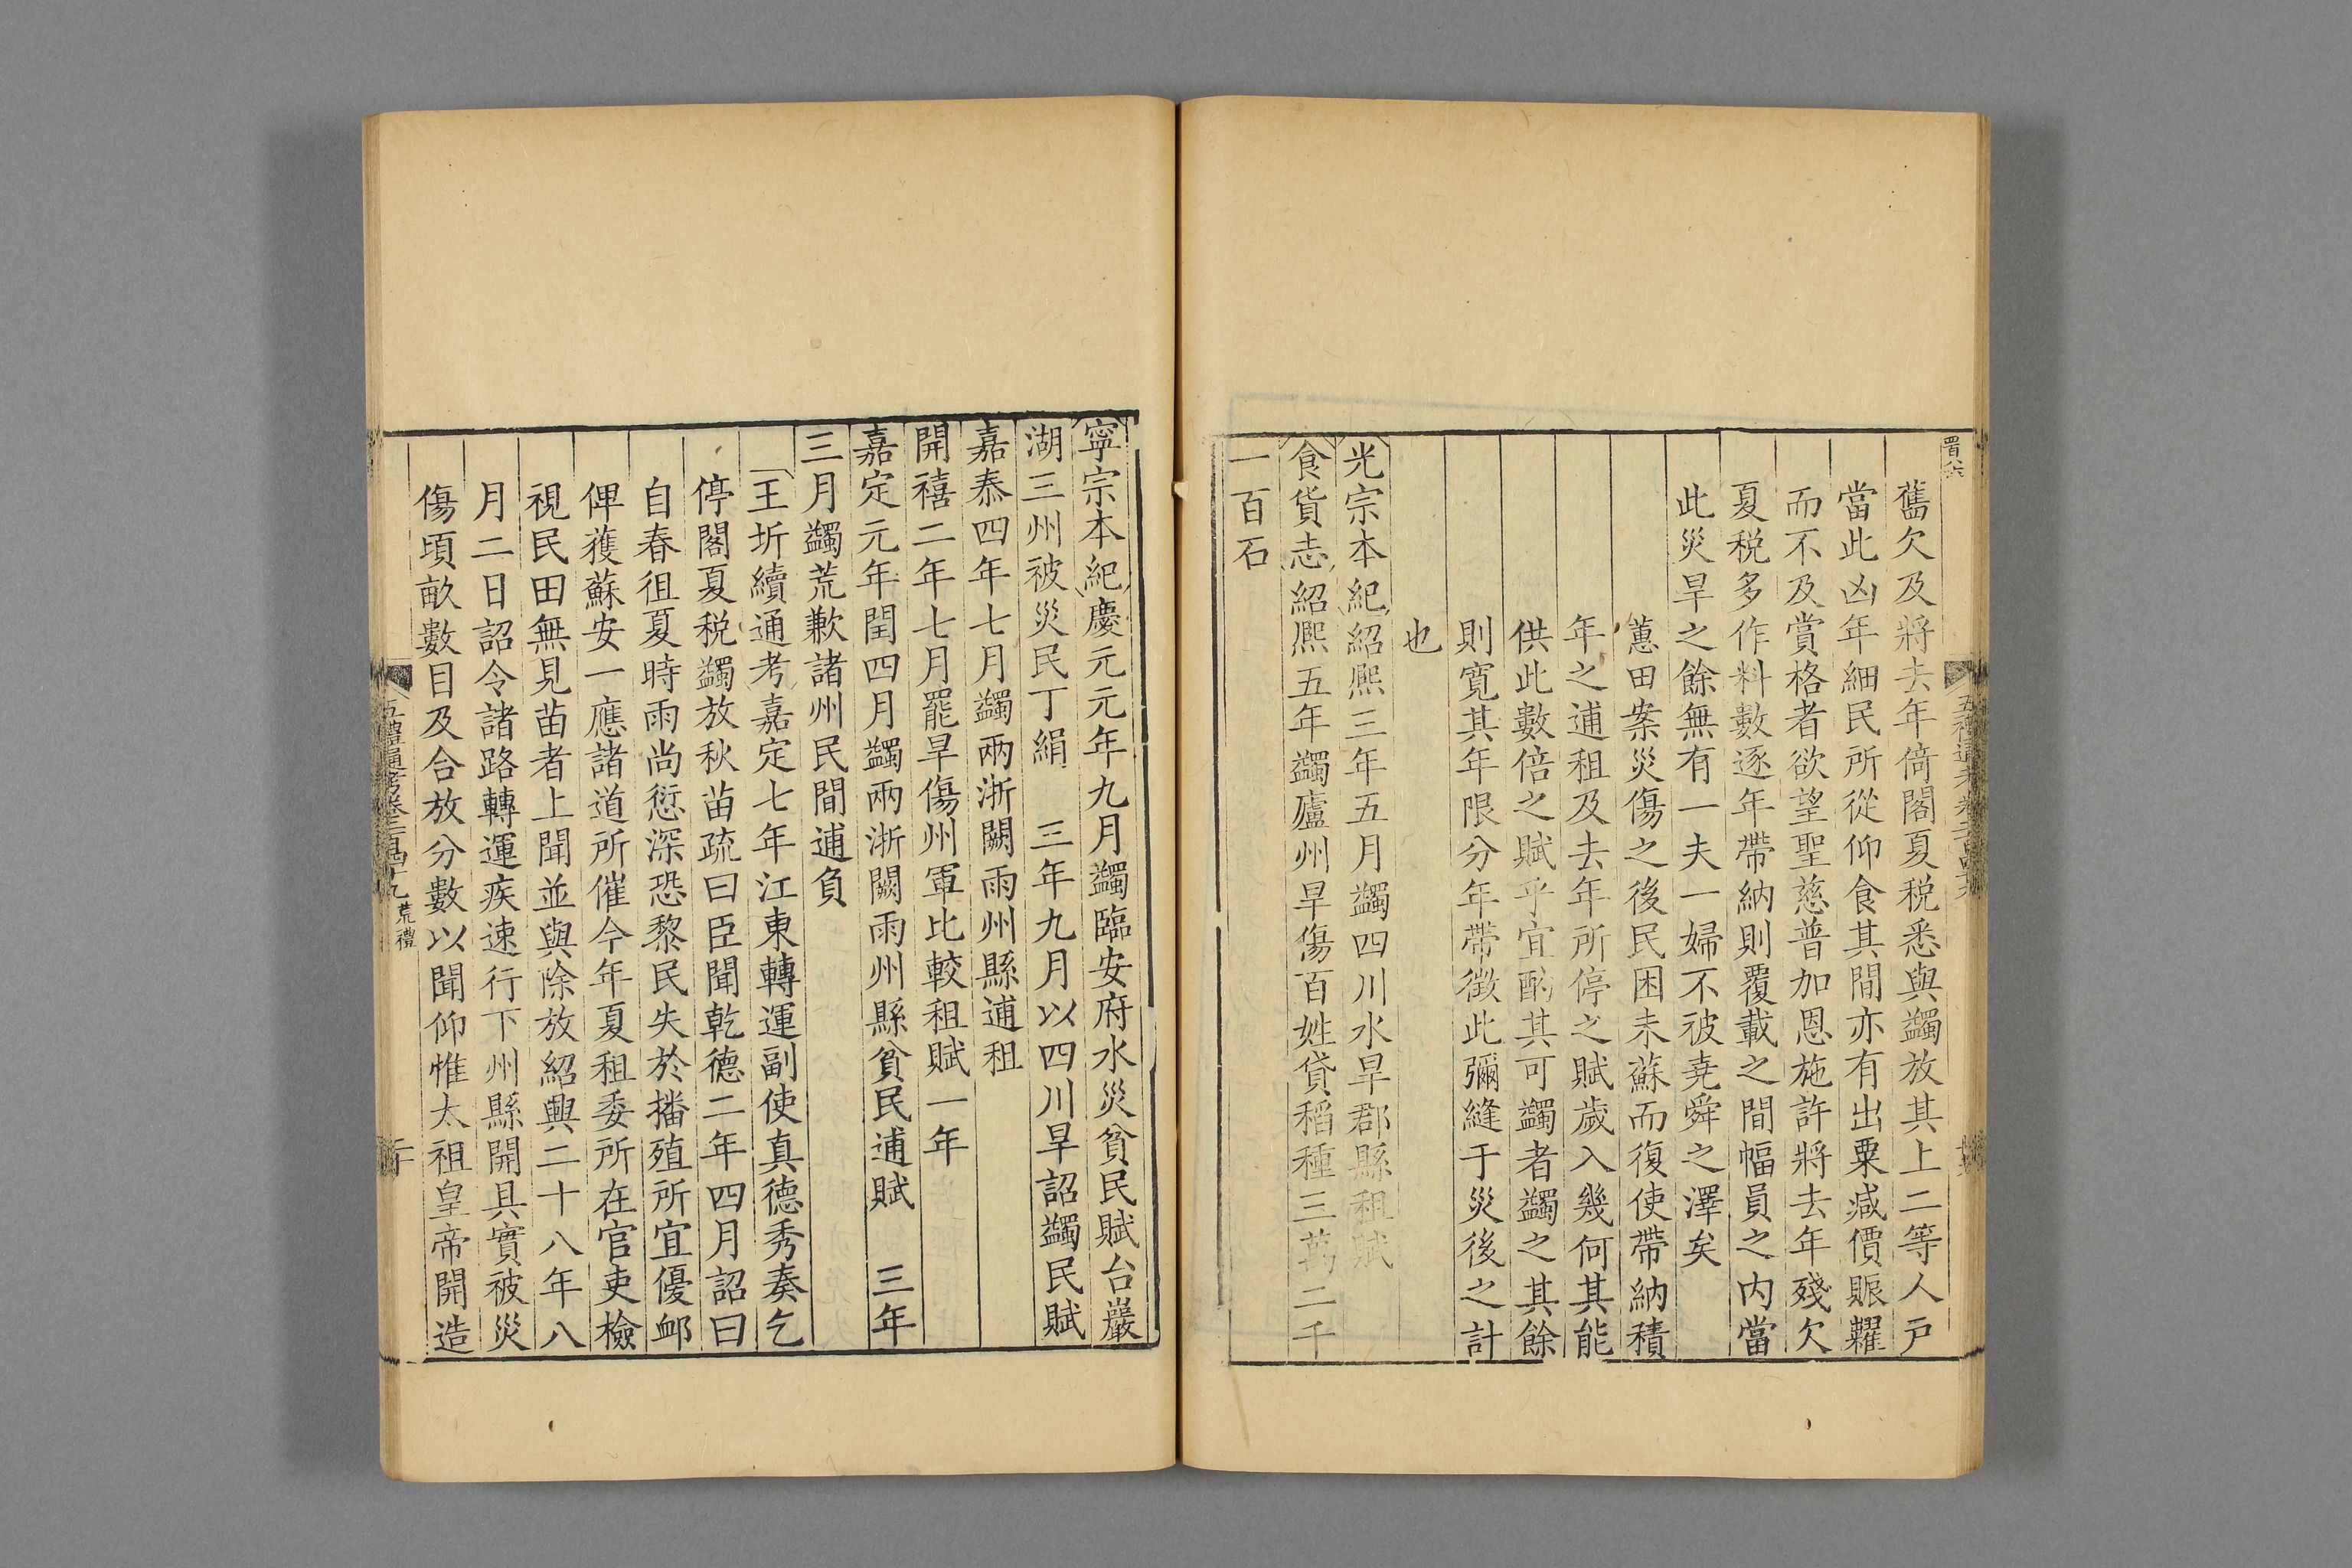 舊欠及將去年倚閣夏税悉與蠲放其上二等人戸
當此凶年細民所從仰食其間亦有出粟減價賑糶
而不及賞格者欲望聖慈普加恩施許將去年殘欠
夏税多作料數逐年帶納則覆載之間幅員之内當
此災旱之餘無有一夫一婦不被堯舜之澤矣
蕙田案災傷之後民困未蘇而復使帶納積
年之逋租及去年所停之賦歲入幾何其能
供此數倍之賦乎宜酌其可蠲者蠲之其餘
則寛其年限分年帶徵此彌縫于災後之計
也
光宗本紀紹熈三年五月蠲四川水旱郡縣租賦
食貨志紹熈五年蠲廬州旱傷百姓貸稻種三萬二千
一百石
寧宗本紀慶元元年九月蠲臨安府水災貧民賦台嚴
湖三州被災民丁絹　三年九月以四川旱詔蠲民賦
嘉泰四年七月蠲兩浙闕雨州縣逋租
開禧二年七月罷旱傷州軍比較租賦一年
嘉定元年閏四月蠲兩浙闕雨州縣貧民逋賦　三年
三月蠲荒歉諸州民間逋負
王圻續通考嘉定七年江東轉運副使真德秀奏乞
停閣夏税蠲放秋苗疏曰臣聞乾德二年四月詔曰
自春徂夏時雨尚愆深恐黎民失於播殖所宜優衈
俾獲蘇安一應諸道所催今年夏租委所在官吏檢
視民田無見苗者上聞並與除放紹興二十八年八
月二日詔令諸路轉運疾速行下州縣開具實被災
傷頃畝數目及合放分數以聞仰惟太祖皇帝開造
五禮通考卷二百四十九 荒禮